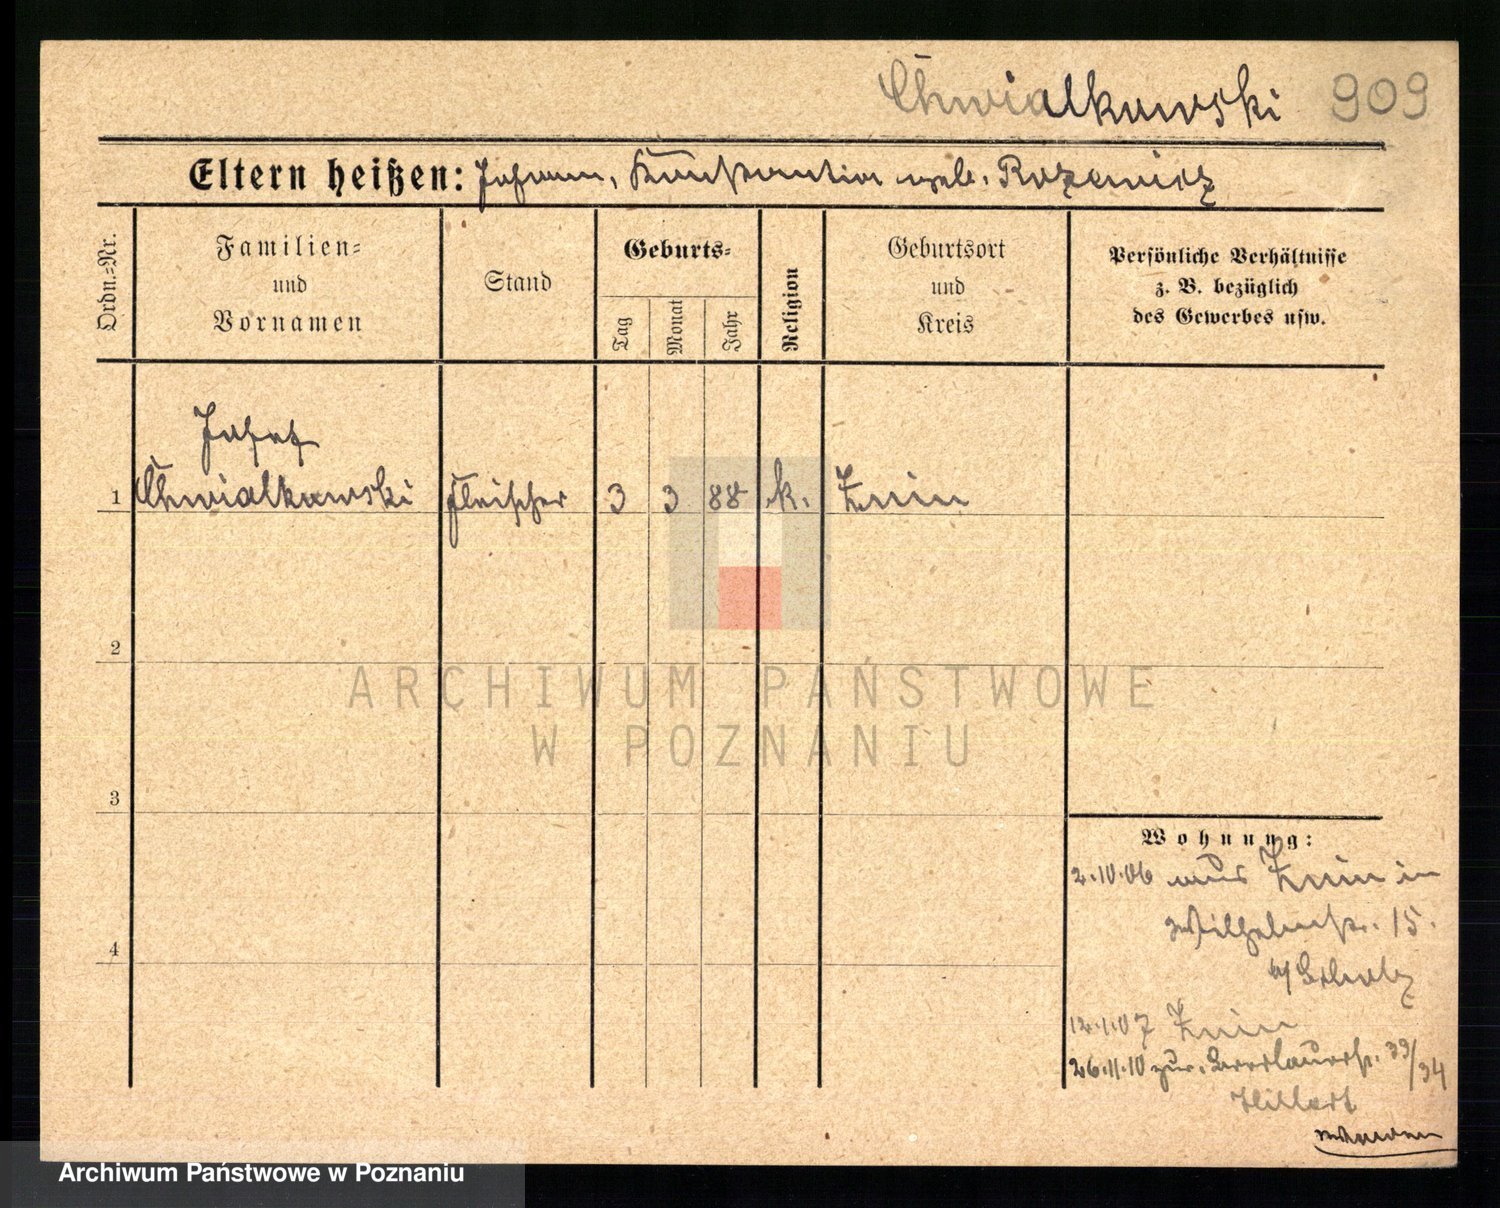 Chwialkowski 909
Eltern heißen: Johann, Konstantia geb. Rozewicz
Ordn.=Nr.
Familien=
und
Vornamen
Stand
Geburts=
Tag
Monat
Jahr
Religion
Geburtsort
und
Kreis
Persönliche Verhältnisse
z. B. bezüglich
des Gewerbes usw.
Josef
1 Chwialkowski Fleischer 3 3 88 k. Znin
2
3
4
Wohnung:
2.10.06 aus Znin in
Wilhelmstr. 15.
b/ Scholz
12.1.07 Znin
26.11.10 zur. Breslauerstr. 33/34
Hillert
ARCHIWUM PAŃSTWOWE
W POZNANIU
Archiwum Państwowe w Poznaniu